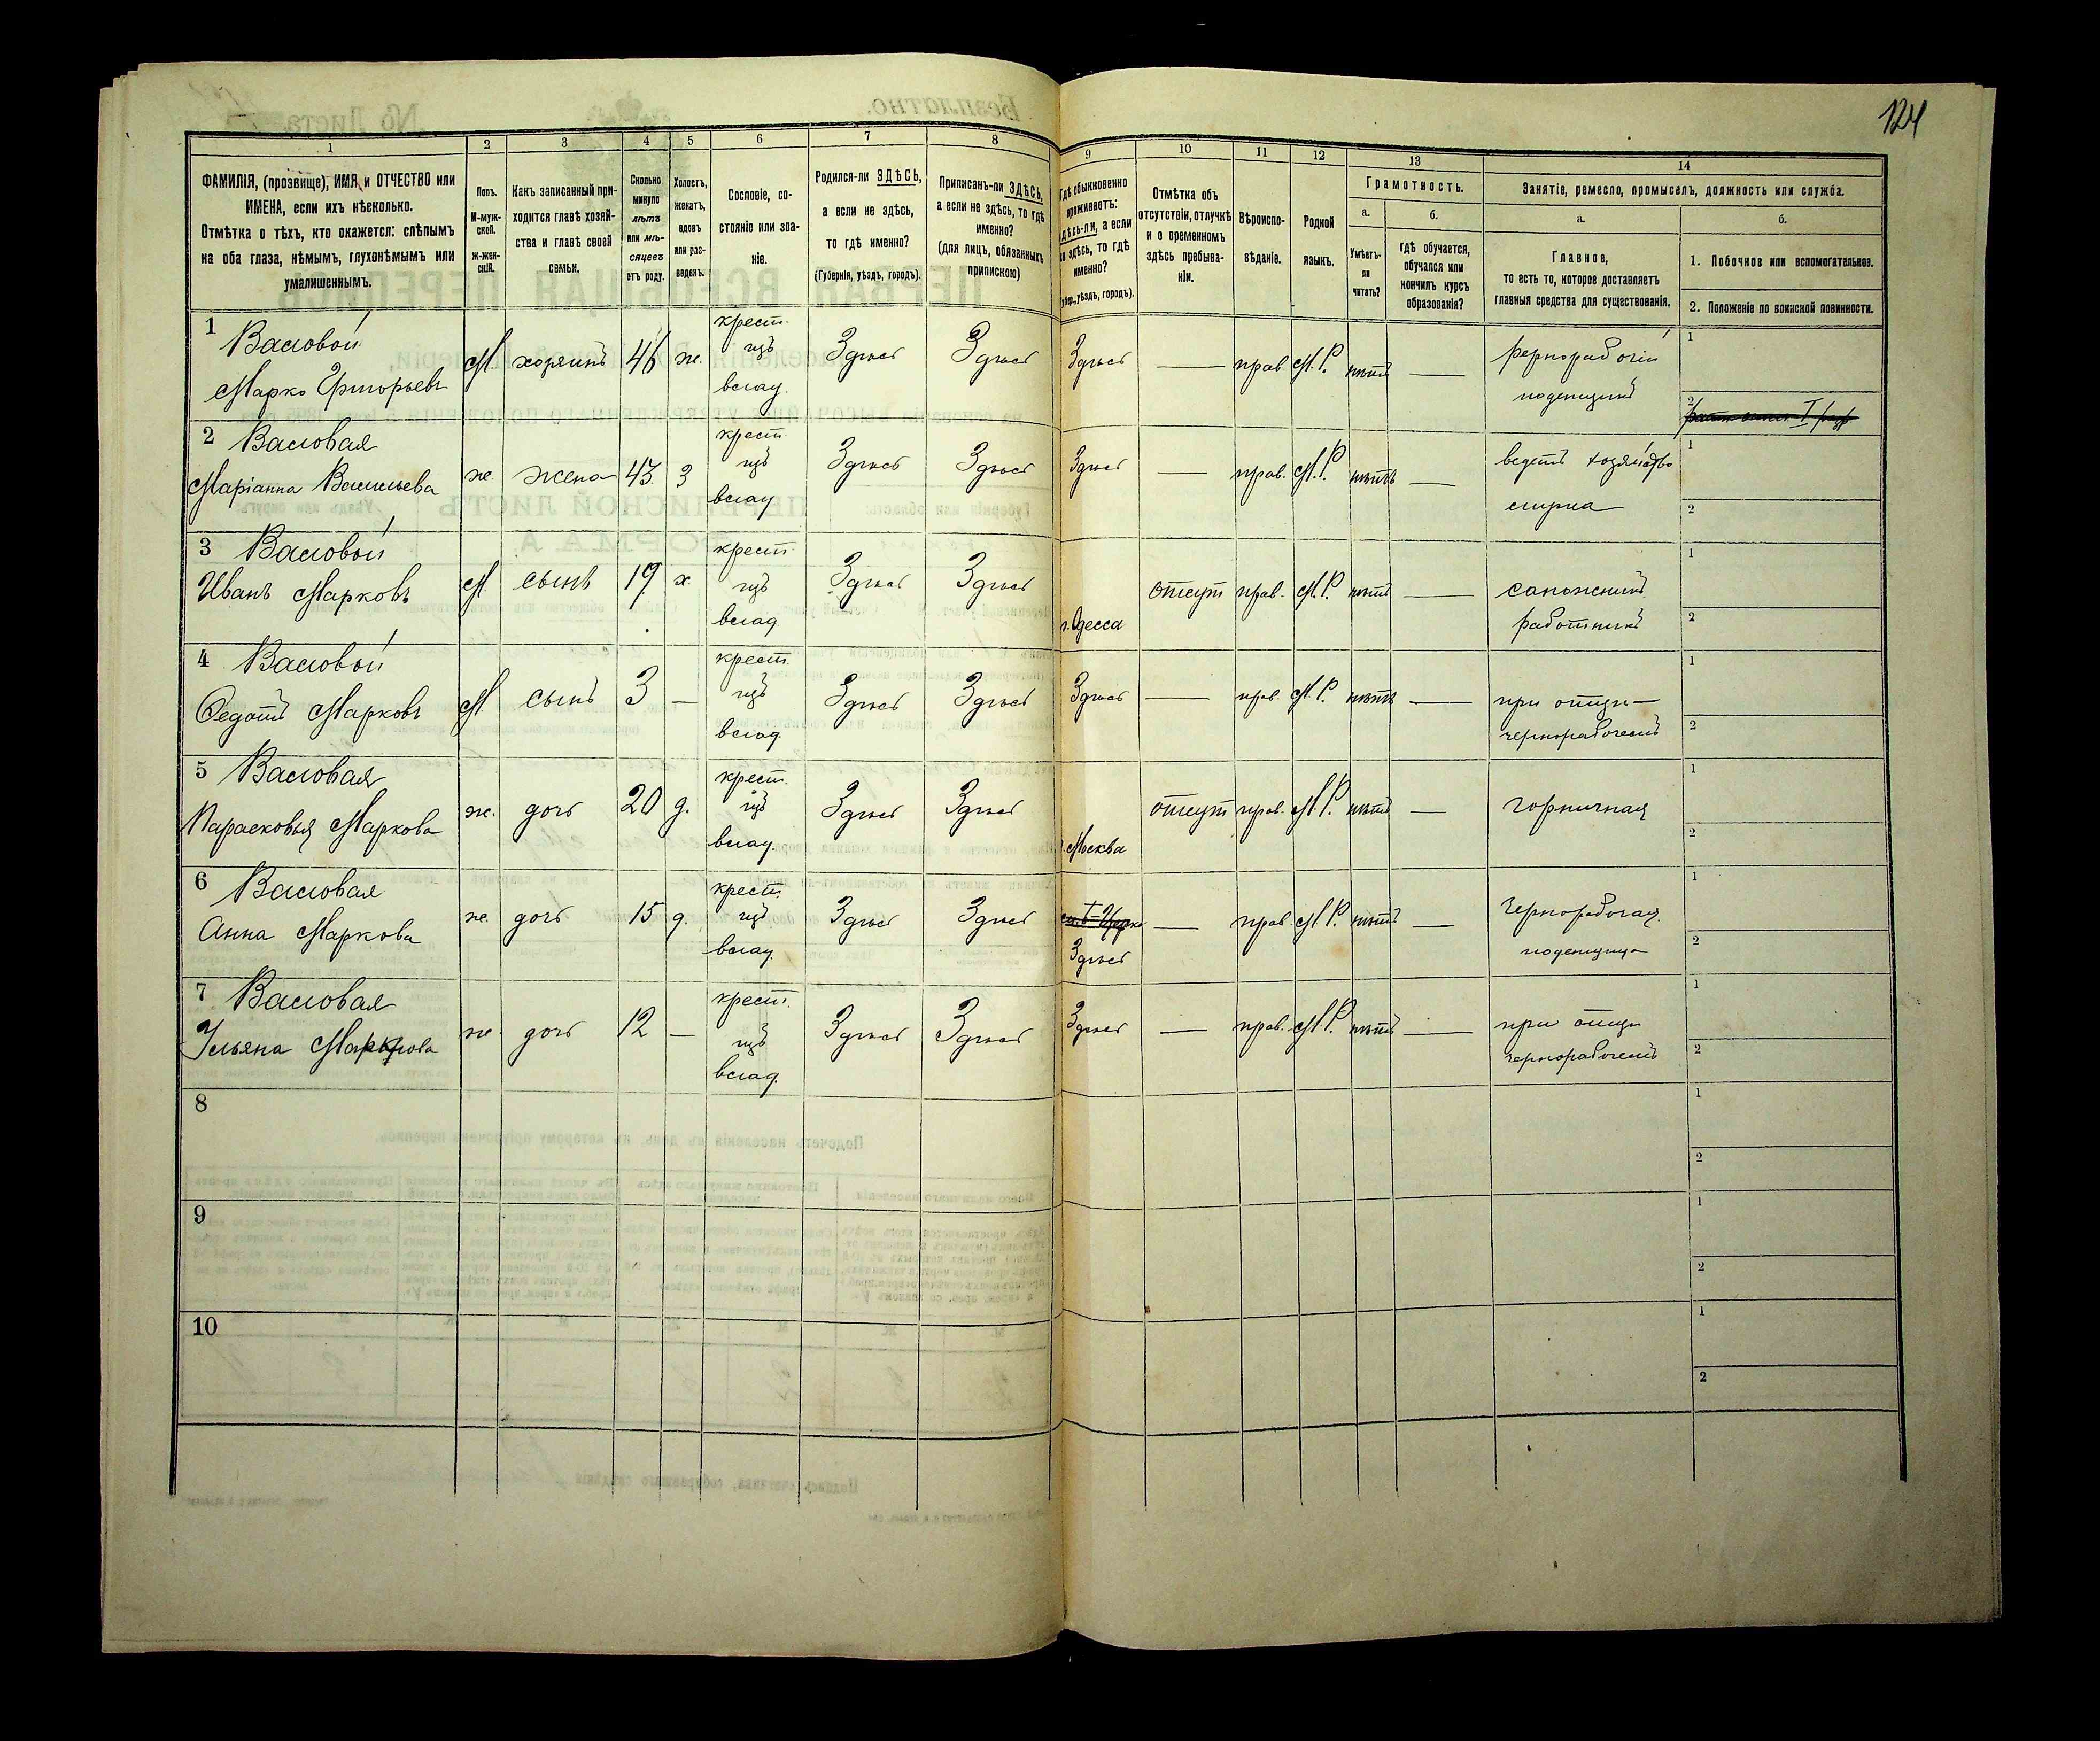 124
1 2 3 4 5 6 7 8 9 10 11 12 13 14
ФАМИЛІЯ, (прозвище), ИМЯ и ОТЧЕСТВО или
ИМЕНА, если ихъ нѣсколько.
Отмѣтка о тѣхъ, кто окажется: слѣпымъ
на оба глаза, нѣмымъ, глухонѣмымъ или
умалишеннымъ.
Полъ.
М-муж-
ской.
Ж-жен-
скій.
Какъ записанный при-
ходится главѣ хозяй-
ства и главѣ своей
семьи.
Сколько
минуло
лѣтъ
или мѣ-
сяцевъ
отъ роду.
Холостъ,
женатъ,
вдовъ
или раз-
веденъ.
Сословіе, со-
стояніе или зва-
ніе.
Родился-ли ЗДѢСЬ,
а если не здѣсь,
то гдѣ именно?
(Губернія, уѣздъ, городъ).
Приписанъ-ли ЗДѢСЬ,
а если не здѣсь, то гдѣ
именно?
(для лицъ, обязанныхъ
припискою)
Гдѣ обыкновенно
проживаетъ:
здѣсь-ли, а если
не здѣсь, то гдѣ
именно?
(Губер., уѣздъ, городъ).
Отмѣтка объ
отсутствіи, отлучкѣ
и о временномъ
здѣсь пребыва-
ніи.
Вѣроиспо-
вѣданіе.
Родной
языкъ.
Грамотность.
а.
Умѣетъ-
ли
читать?
б.
гдѣ обучается,
обучался или
кончилъ курсъ
образованія?
Занятіе, ремесло, промыселъ, должность или служба.
а.
Главное,
то есть то, которое доставляетъ
главныя средства для существованія.
б.
1. Побочное или вспомогательное.
2. Положеніе по воинской повинности.
1 Валовой
Марко Григорьевъ
М. хозяинъ 46 ж.
крест.
изъ
влад.
Здѣсь Здѣсь Здѣсь — прав. М.Р. нѣтъ —
чернорабочій
поденщикъ
1
2
2 Валовая
Маріанна Васильева
ж. жена 43 З
крест.
изъ
влад.
Здѣсь Здѣсь Здѣсь — прав. М.Р. нѣтъ —
ведетъ хозяйство
1
2
3 Валовой
Иванъ Марковъ
М. сынъ 19 х.
крест.
изъ
влад.
Здѣсь Здѣсь
г. Одесса
отсут прав. М.Р. нѣтъ —
сапожный
работникъ
1
2
4 Валовой
Федотъ Марковъ
М сынъ 3 —
крест.
изъ
влад.
Здѣсь Здѣсь Здѣсь — прав. М.Р. нѣтъ —
при отцѣ —
чернорабочемъ
1
2
5 Валовая
Парасковья Маркова
ж. дочь 20 д.
крест.
изъ
влад.
Здѣсь Здѣсь
Москва
отсут прав. М.Р. нѣтъ —
горничная
1
2
6 Валовая
Анна Маркова
ж. дочь 15 д.
крест.
изъ
влад.
Здѣсь Здѣсь
Здѣсь
— прав. М.Р. нѣтъ —
Чернорабочая
поденщица
1
2
7 Валовая
Ульяна Маркова
ж дочь 12 —
крест.
изъ
влад.
Здѣсь Здѣсь Здѣсь — прав. М.Р. нѣтъ —
при отцѣ
чернорабочемъ
1
2
8
1
2
9
1
2
10
1
2